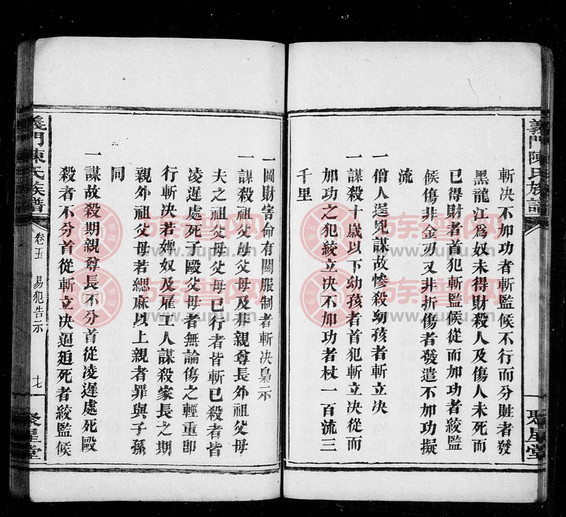 義門陳氏族譜
斬决不加功者斬監候不行而分賍者發
黑龍江為奴未得財殺人及傷人未死而
已得財者首犯斬監候從而加功者絞監
候傷非金刃又非折傷者發遣不加功擬
流
一僧人逞兇謀故慘殺幼孩者斬立决
一謀殺十歲以下幼孩者首犯斬立决從而
加功之犯絞立决不加功者杖一百流三
千里
聚星堂
一圖財害命有關服制者斬决梟示
一謀殺祖父母父母及期親尊長外祖父母
夫之祖父母父母已行者皆斬已殺者皆
凌遲處死子毆父母者無論傷之輕重即
行斬决若婢奴及雇工人謀殺家長之期
親外祖父母若緦麻以上親者罪與子孫
同
一謀故殺期親尊長不分首從凌遲處死毆
殺者不分首從斬立决逼廹死者絞監候
義門陳氏族譜
卷五
易犯告示
聚星堂
东普网
www.ouupu.com